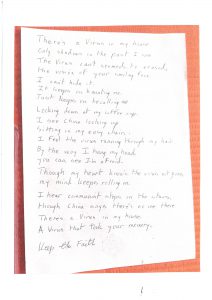 There's a Virus in my house.
Only shadows in the past I see
The Virus can't seem to be erased,
The voices of your smiling face
I can't hide it.
It keeps on haunting me.
Just keeps on recalling me
Looking down at my coffee cup.
I see China looking up
Sitting in my easy chair.
I feel the virus running through my hair
By the way I hang my head
you can see I'm afraid.
Though my heart knows the virus
my mind keeps rolling
I hear communist steps on the stairs,
though China says there's no one there
There's a Virus in my house.
A Virus that took your memory.
Keep the Faith